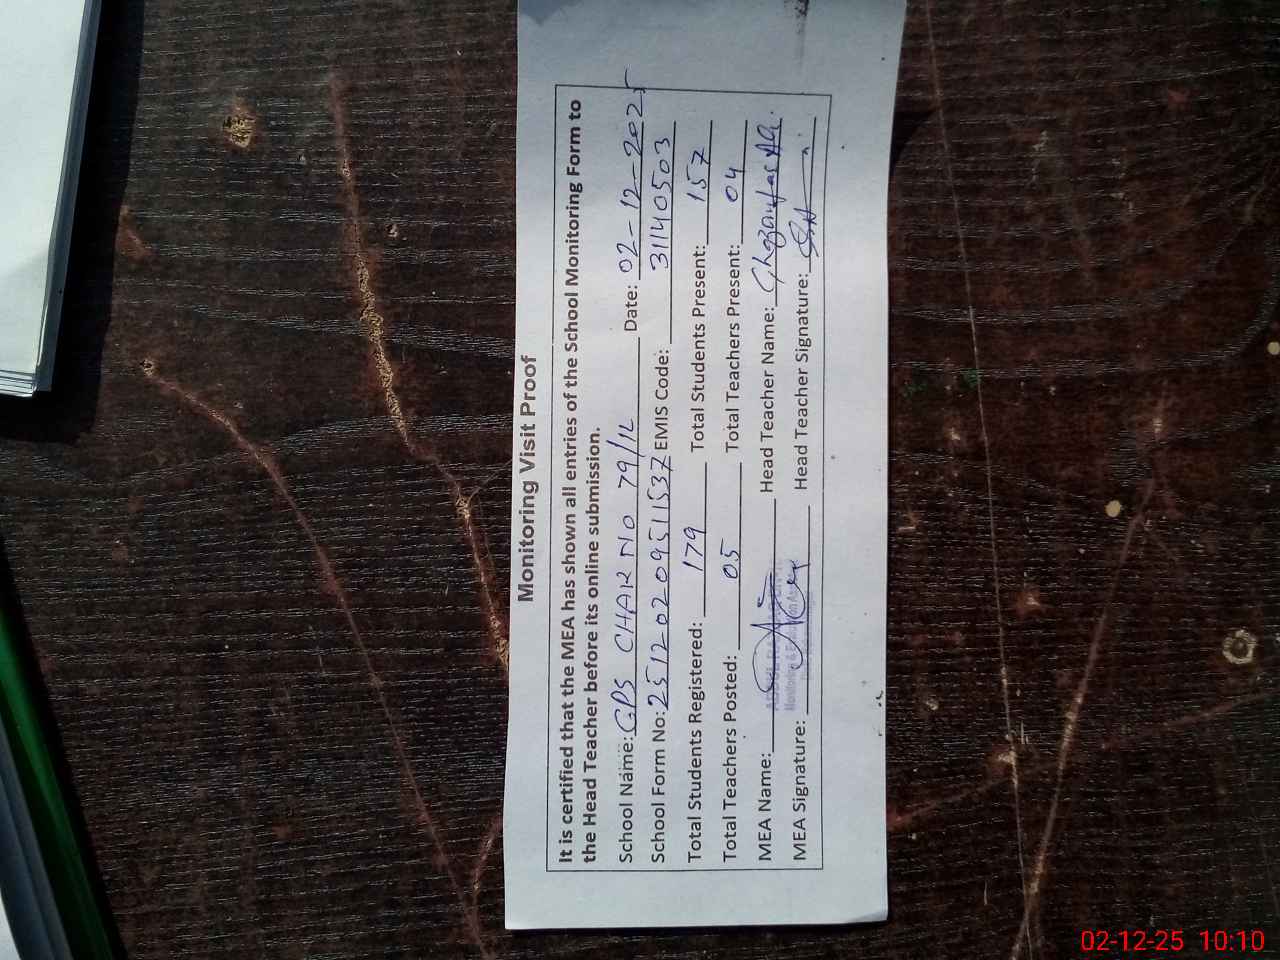 Monitoring Visit Proof
It is certified that the MEA has shown all entries of the School Monitoring Form to
the Head Teacher before its online submission.
School Name: GPS CHAK NO 79/12 Date: 02-12-2025
School Form No: 25120209511537 EMIS Code: 31140503
Total Students Registered: 179 Total Students Present: 157
Total Teachers Posted: 05 Total Teachers Present: 04
MEA Name: Head Teacher Name: Ghazanfar Ali
MEA Signature: Head Teacher Signature:
Monitoring &
02-12-25 10:10